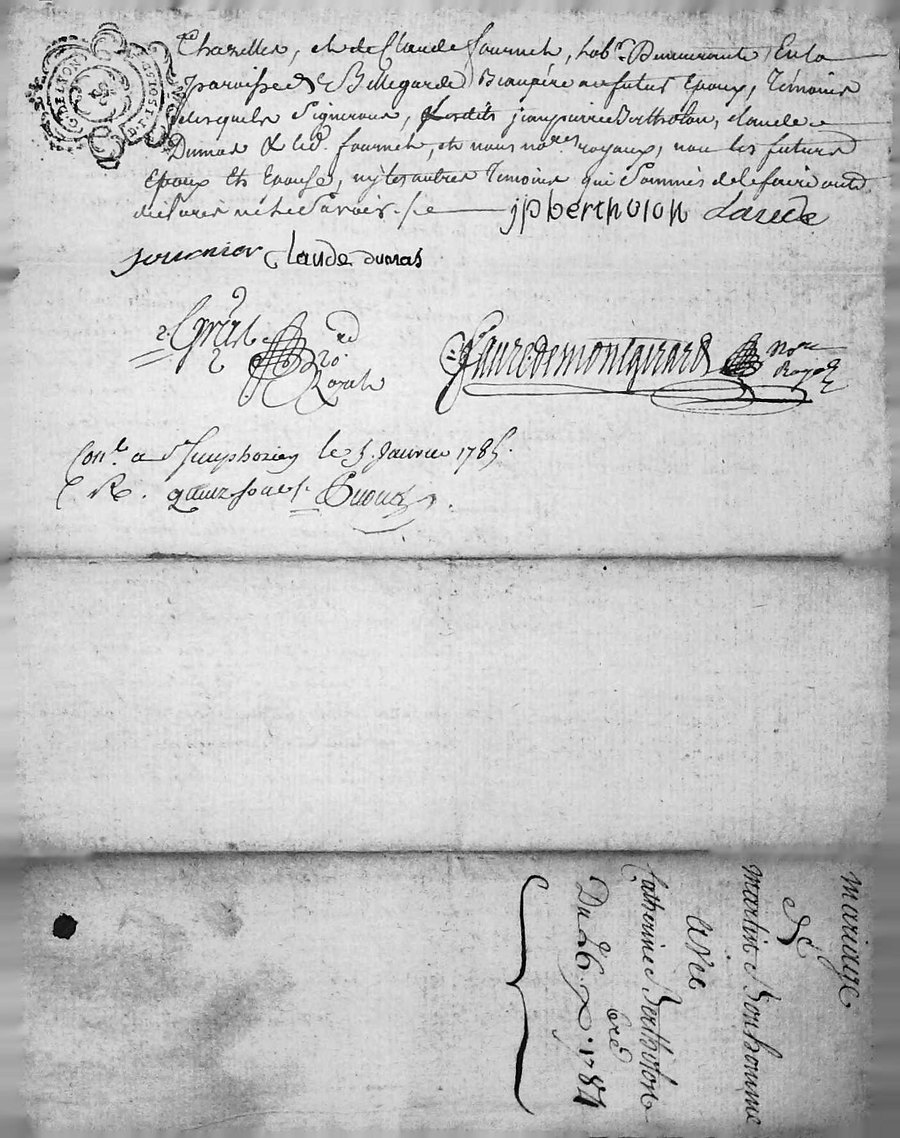 Chazelles, et de Claude fournier, hab.t Demeurant En la
paroisse de Bellegarde Beaupère au futur Epoux, Témoins
desquels Signeront, Lesdits jean pierre Bertholon, claude
Dumas & led. fournier, et nous no.res royaux, non les futurs
Epoux et Epouse, ny les autres Témoins qui Sommés de le faire ont
déclarés ne le Savoir ./.
jpbertholon Claude
fournier Claude dumas
No.
Royal
fauredemontgirard No.re
Royal
Con.lé a St Simphorien le 5. Janvier 1785.
R. quinze sols
mariage
De
martin Bonhomme
avec
Catherine Bertholon
Du 26. 1784